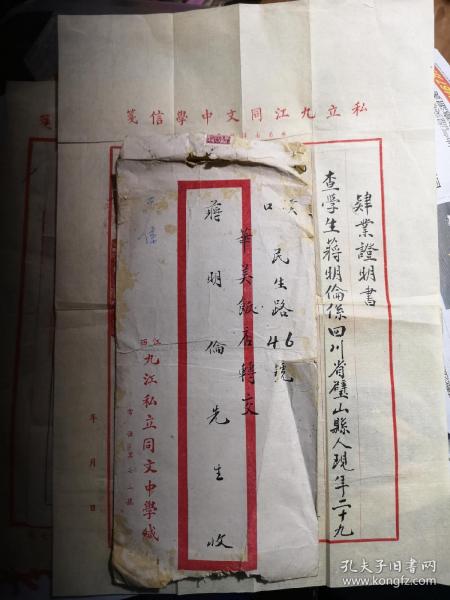 私立九江同文中學信箋
肄業證明書
查學生蔣明倫係四川省璧山縣人現年二十九
漢口
民生路46號
華美飯店轉交
蔣明倫先生收
江西
九江私立同文中學緘
年 月 日
箋
孔夫子旧书网